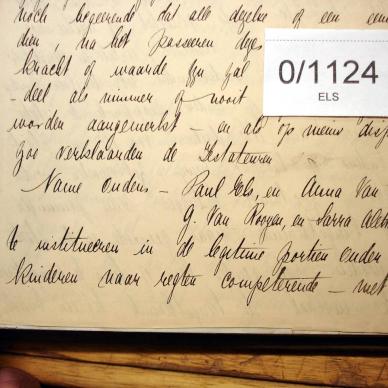 noch begeerende dat alle degelve of een
dien, na het passeeren dezes
kracht of waarde zyn zal
0/1124
ELS
- deel als nimmer of nooit
worden aangemerkt - en als op nieuw
zoe verklaarden de Testateuren
Name Ouders - Paul Els, en Anna Van
G. Van Rooyen, en Sarra
te institueeren in de legitime portien onder
kinderen naar regten competeerende - met